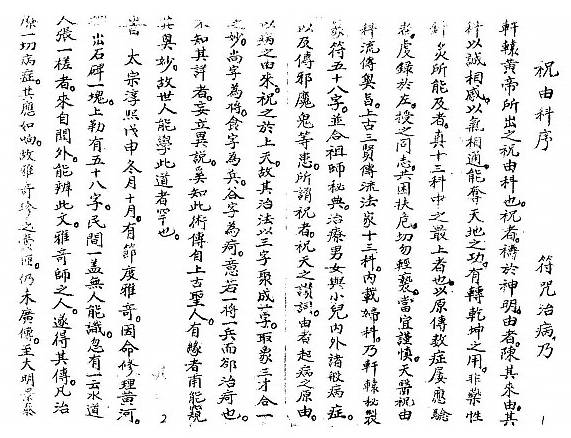 祝由科序　符咒治病乃
軒轅黃帝所出之祝由科也。祝者。禱於神明。由者。陳其來由。其
科以誠相感。以氣相通。能奪天地之功。有轉乾坤之用。非藥性
針灸所能及者。真十三科中之最上者也。以原傳数症屡應驗
者。虔録於左。授之同志。共困扶危。切勿輕褻。當宜謹慎。天醫祝由
科流傳奧旨。上古三賢傳流法家十三科。内載婦科。乃軒轅秘製
符五十八字。並合祖師秘典。治療男女與小兒内外諸般病症。
以及傳邪魔鬼等患。所謂祝者。祝天之讚詞。由者起病之原由。
以病之由來。祝之於上天。故其治法以三字聚成一字。取象三才合一
之妙。尚字為將。食字為兵。合字為疴。意若一将一兵而卻治疴也。
不知其詳者。妄立異説。奚知此術傳自上古聖人。有緣者甫能窺
其奥妙。故世人能學此道者罕也。
2
當　太宗淳熙戊申冬月十月。有節度雅奇。因命修理黃河。
出石碑一塊。上勒有五十八字。民間一盖無人能識。忽有一云水道
人張一槎者。來自閩外。能辨此文。雅奇師之人。遂得其傳。凡治
療一切病症。其應如响。故雅奇珍之。仍未廣傳。至大明景泰
1